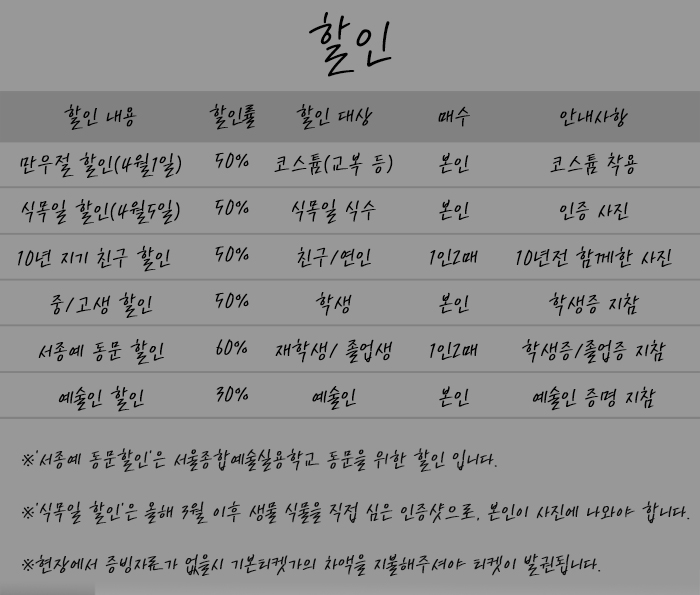 할인
할인 내용 할인률 할인 대상 매수 안내사항
만우절 할인(4월1일) 50% 코스튬(교복 등) 본인 코스튬 착용
식목일 할인(4월5일) 50% 식목일 식수 본인 인증 사진
10년 지기 친구 할인 50% 친구/연인 1인2매 10년전 함께한 사진
중/고생 할인 50% 학생 본인 학생증 지참
서종예 동문 할인 60% 재학생/ 졸업생 1인2매 학생증/졸업증 지참
예술인 할인 30% 예술인 본인 예술인 증명 지참
※'서종예 동문할인'은 서울종합예술실용학교 동문을 위한 할인 입니다.
※'식목일 할인'은 올해 3월 이후 생물 식물을 직접 심은 인증샷으로, 본인이 사진에 나와야 합니다.
※현장에서 증빙자료가 없을시 기본티켓가의 차액을 지불해주셔야 티켓이 발권됩니다.